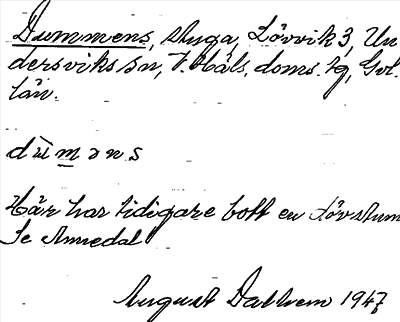 Dummens, stuga, Lövvik 3, Un
dersviks sn, V. Häls. doms. tg, Gvl.
län.
düməns
Här har tidigare bott en dövstum
Se Annedal
August Dalhem 1947